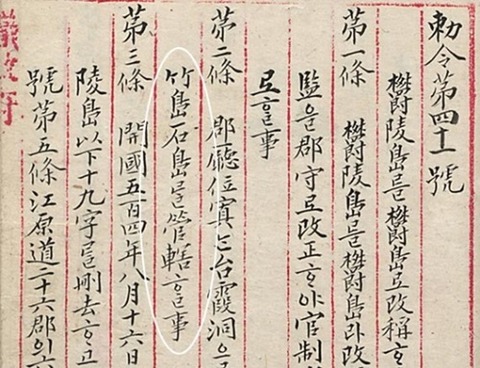 勅令第四十一號
欝陵島를欝島로改稱ᄒᆞ
第一條 欝陵島를欝島라改
監을郡守로改正ᄒᆞ야官制
로ᄒᆞᆯ事
第二條 郡廳位寘ᄂᆞᆫ台霞洞으
竹島石島를管轄ᄒᆞᆯ事
第三條 開國五百四年八月十六日
陵島以下十九字를刪去ᄒᆞ고
號第五條江原道二十六郡의六
議政府